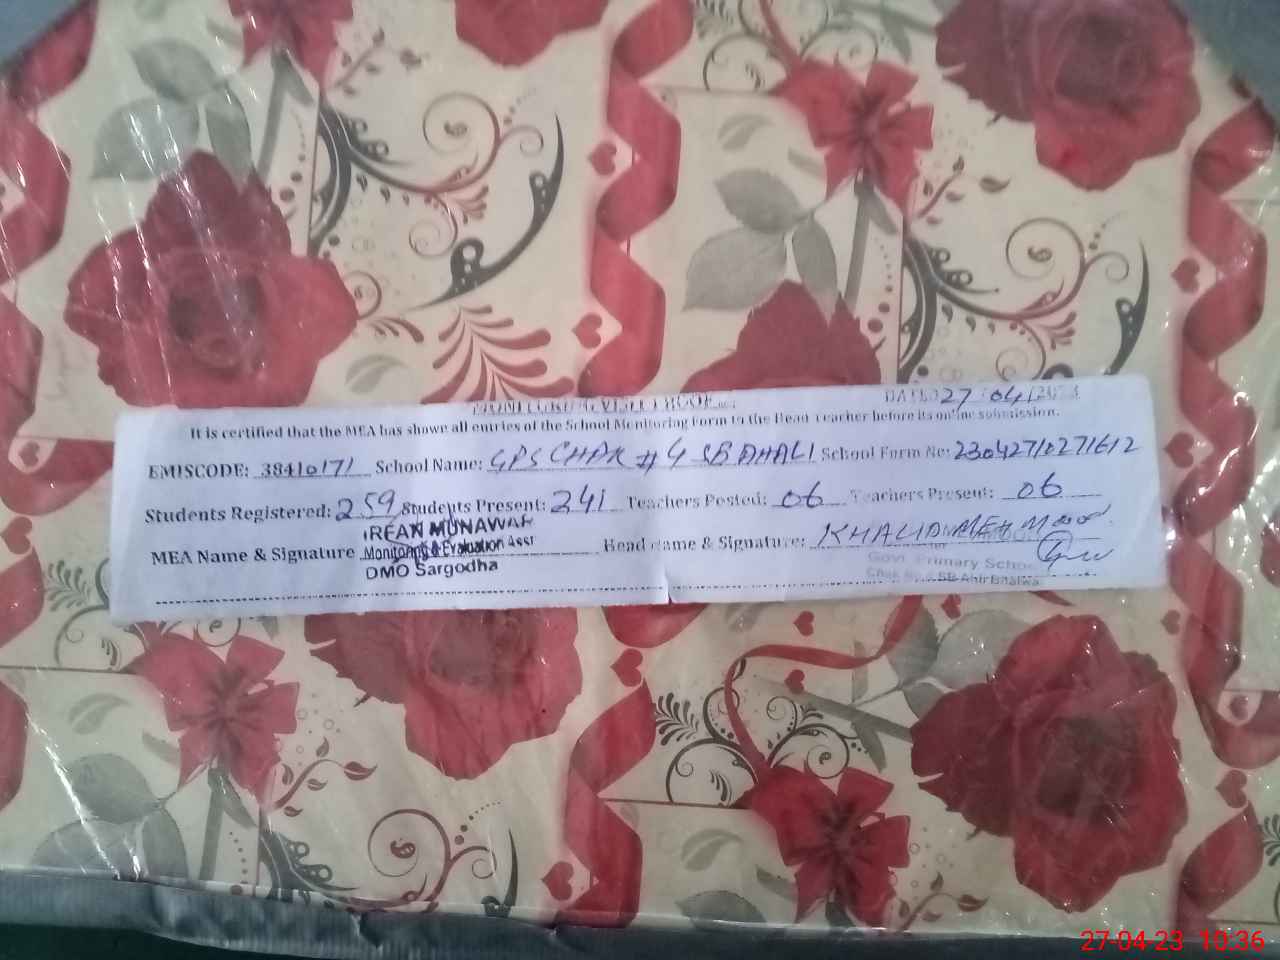 MONITORING VISIT PROOF
DATED 27/04/2023
It is certified that the MEA has shown all entries of the School Monitoring Form to the Head Teacher before its online submission.
EMISCODE: 38410171 School Name: GPS CHAK # 4 SB AHALI School Form No: 23042710271612
Students Registered: 259 Students Present: 241 Teachers Posted: 06 Teachers Present: 06
MEA Name & Signature IRFAN MUNAWAR Head Name & Signature: KHALID
Monitoring & Evaluation Asst
DMO Sargodha
Govt. Primary School
SB Ahir Bhalwal
27-04-23 10:36